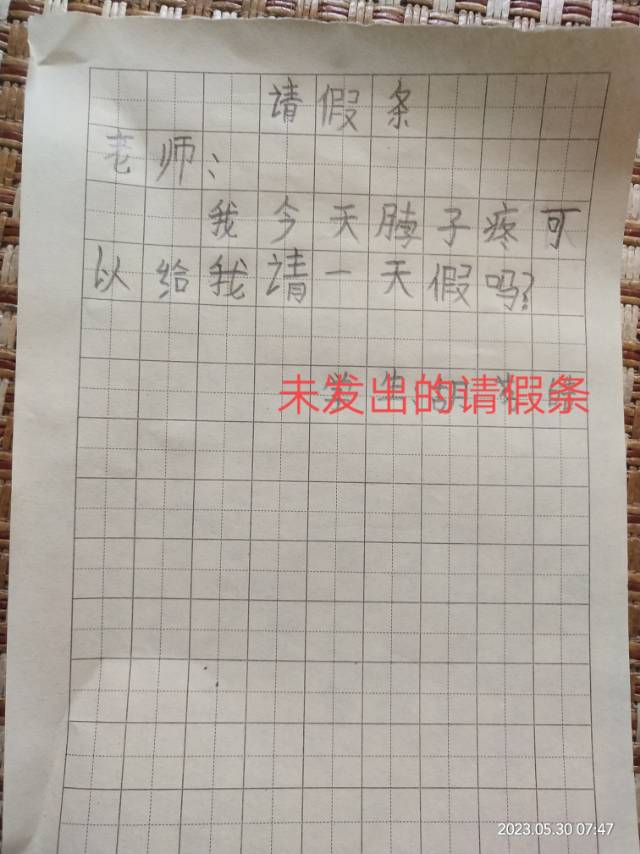 请假条
老师：
我今天脖子疼可
以给我请一天假吗?
学生
未发出的请假条
2023.05.30 07:47